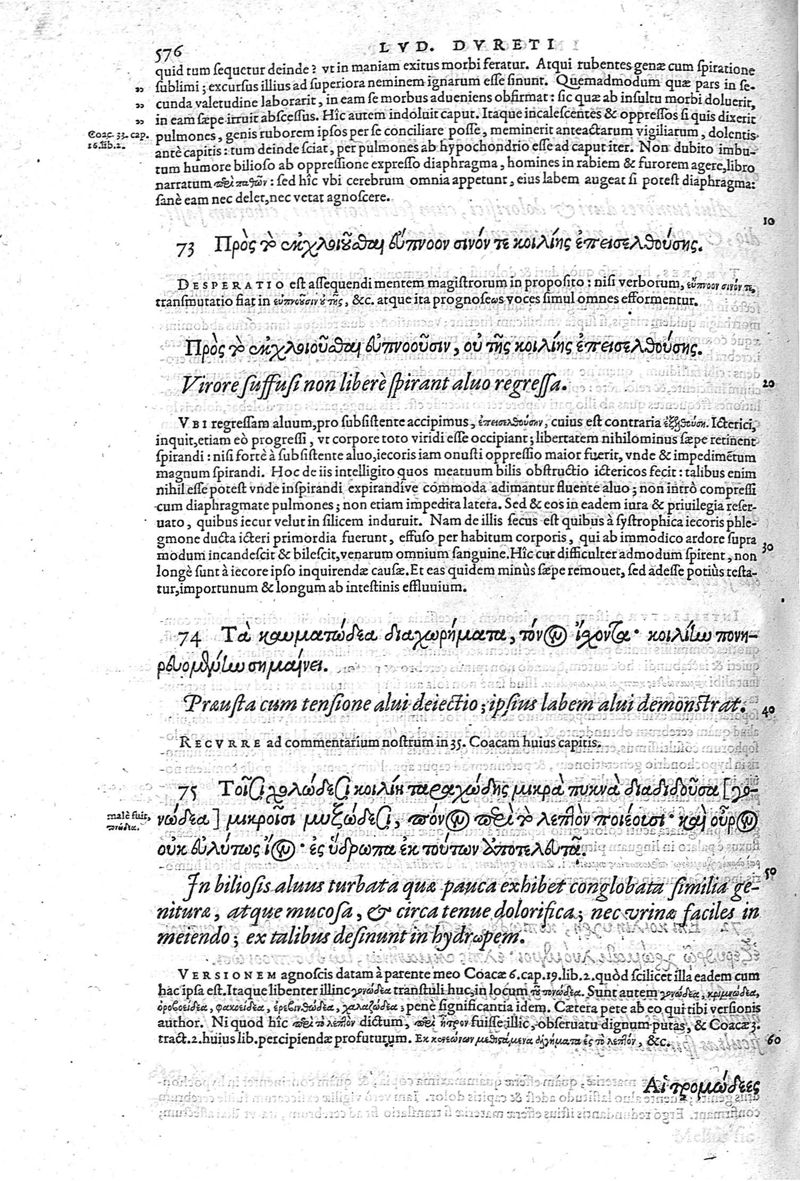 576
LVD. DVRETI
quid tum sequetur deinde? vt in maniam exitus morbi feratur. Atqui rubentes genæ cum spiratione
„ sublimi; excursus illius ad superiora neminem ignarum esse sinunt. Quemadmodum quæ pars in se-
„ cunda valetudine laborarit, in eam se morbus adueniens obfirmat: sic quæ ab insultu morbi doluerit,
„ in eam sæpe irruit abscessus. Hîc autem indoluit caput. Itaque incalescentes & oppressos si quis dixerit
Coac. 33. cap.
16. lib. 2.
pulmones, genis ruborem ipsos per se conciliare posse, meminerit anteactarum vigiliarum, dolentis
antè capitis: tum deinde sciat, per pulmones ab hypochondrio esse ad caput iter. Non dubito imbu-
tum humore bilioso ab oppressione expresso diaphragma, homines in rabiem & furorem agere, libro
narratum περὶ παθῶν: sed hîc vbi cerebrum omnia appetunt, eius labem augeat si potest diaphragma:
sanè eam nec delet, nec vetat agnoscere.
10
73 Πρὸς τὸ ἐκχλοιοῦσθαι εὔπνοον σινόν τε κοιλίης ἐπεισελθούσης.
DESPERATIO est assequendi mentem magistrorum in proposito: nisi verborum, εὔπνοον σινόν τε,
transmutatio fiat in εὐπνοῦσιν οὐ τῆς, &c. atque ita prognoseως voces simul omnes efformentur.
Πρὸς τὸ ἐκχλοιοῦσθαι εὐπνοοῦσιν, οὐ τῆς κοιλίης ἐπεισελθούσης.
Virore suffusi non liberè spirant aluo regressa.
20
VBI regressam aluum, pro subsistente accipimus, ἐπεισελθοῦσαν, cuius est contraria ἐξελθοῦσα. Icterici,
inquit, etiam eò progressi, vt corpore toto viridi esse occipiant; libertatem nihilominus sæpe retinent
spirandi: nisi fortè à subsistente aluo, iecoris iam onusti oppressio maior fuerit, vnde & impedimẽtum
magnum spirandi. Hoc de iis intelligito quos meatuum bilis obstructio ictericos fecit: talibus enim
nihil esse potest vnde inspirandi expirandíve commoda adimantur fluente aluo; non intrò compressi
cum diaphragmate pulmones; non etiam impedita latera. Sed & eos in eadem iura & priuilegia reser-
uato, quibus iecur velut in silicem induruit. Nam de illis secus est quibus à systrophica iecoris phle-
gmone ducta icteri primordia fuerunt, effuso per habitum corporis, qui ab immodico ardore supra
30
modum incandescit & bilescit, venarum omnium sanguine. Hîc cur difficulter admodum spirent, non
longè sunt à iecore ipso inquirendæ causæ. Et eas quidem minùs sæpe remouet, sed adesse potiùs testa-
tur, importunum & longum ab intestinis effluuium.
74 Τὰ καυματώδεα διαχωρήματα, τόνον ἔχοντα· κοιλίην πονη-
ρευομένην σημαίνει.
Præusta cum tensione alui deiectio; ipsius labem alui demonstrat.
40
RECVRRE ad commentarium nostrum in 35. Coacam huius capitis.
75 Τοῖσι χολώδεσι κοιλίη ταραχώδης μικρὰ πυκνὰ διαδιδοῦσα [γο-
malè fuit,
πονώδεα.
νώδεα] μικροῖσι μυξώδεσι, πόνος περὶ τὸ λεπτὸν ποιέοισι· καὶ οὖρος
οὐκ εὐλύπως ἰών· ἐς ὕδρωπα ἐκ τούτων ἀποτελευτᾷ.
50
In biliosis aluus turbata quæ pauca exhibet conglobata similia ge-
nituræ, atque mucosa, & circa tenue dolorifica; nec vrinæ faciles in
meiendo; ex talibus desinunt in hydropem.
VERSIONEM agnoscis datam à parente meo Coacæ 6. cap. 19. lib. 2. quòd scilicet illa eadem cum
hac ipsa est. Itaque libenter illinc γονώδεα transtuli huc, in locum τοῦ πονώδεα. Sunt autem γονώδεα, κριμνώδεα,
ὀροβοειδέα, φακοειδέα, ἐρεβινθώδεα, χαλαζώδεα, penè significantia idem. Cætera pete ab eo, qui tibi versionis
author. Ni quod hîc περὶ τὸ λεπτὸν dictum, περὶ ἦτρον fuisse illic, obseruatu dignum putas, & Coacæ 3.
tract. 2. huius lib. percipiendæ profuturum. Ἐκ κενεώνων μεθιστάμενα ἀλγήματα ἐς τὸ λεπτὸν, &c.
60
Αἱ τρομώδεες